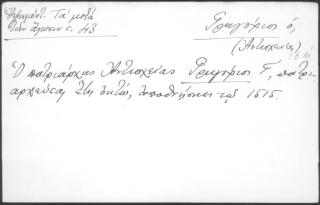 Τὰ μετὰ
τὴν Ἅλωσιν σ. 43
Γρηγόριος ὁ,
(Ἀντιοχείας)
Ὁ πατριάρχης Ἀντιοχείας Γρηγόριος Γ, πατρι
αρχεύσας ἔτη ὀκτώ, ἀποθνήσκει τῷ 1515.